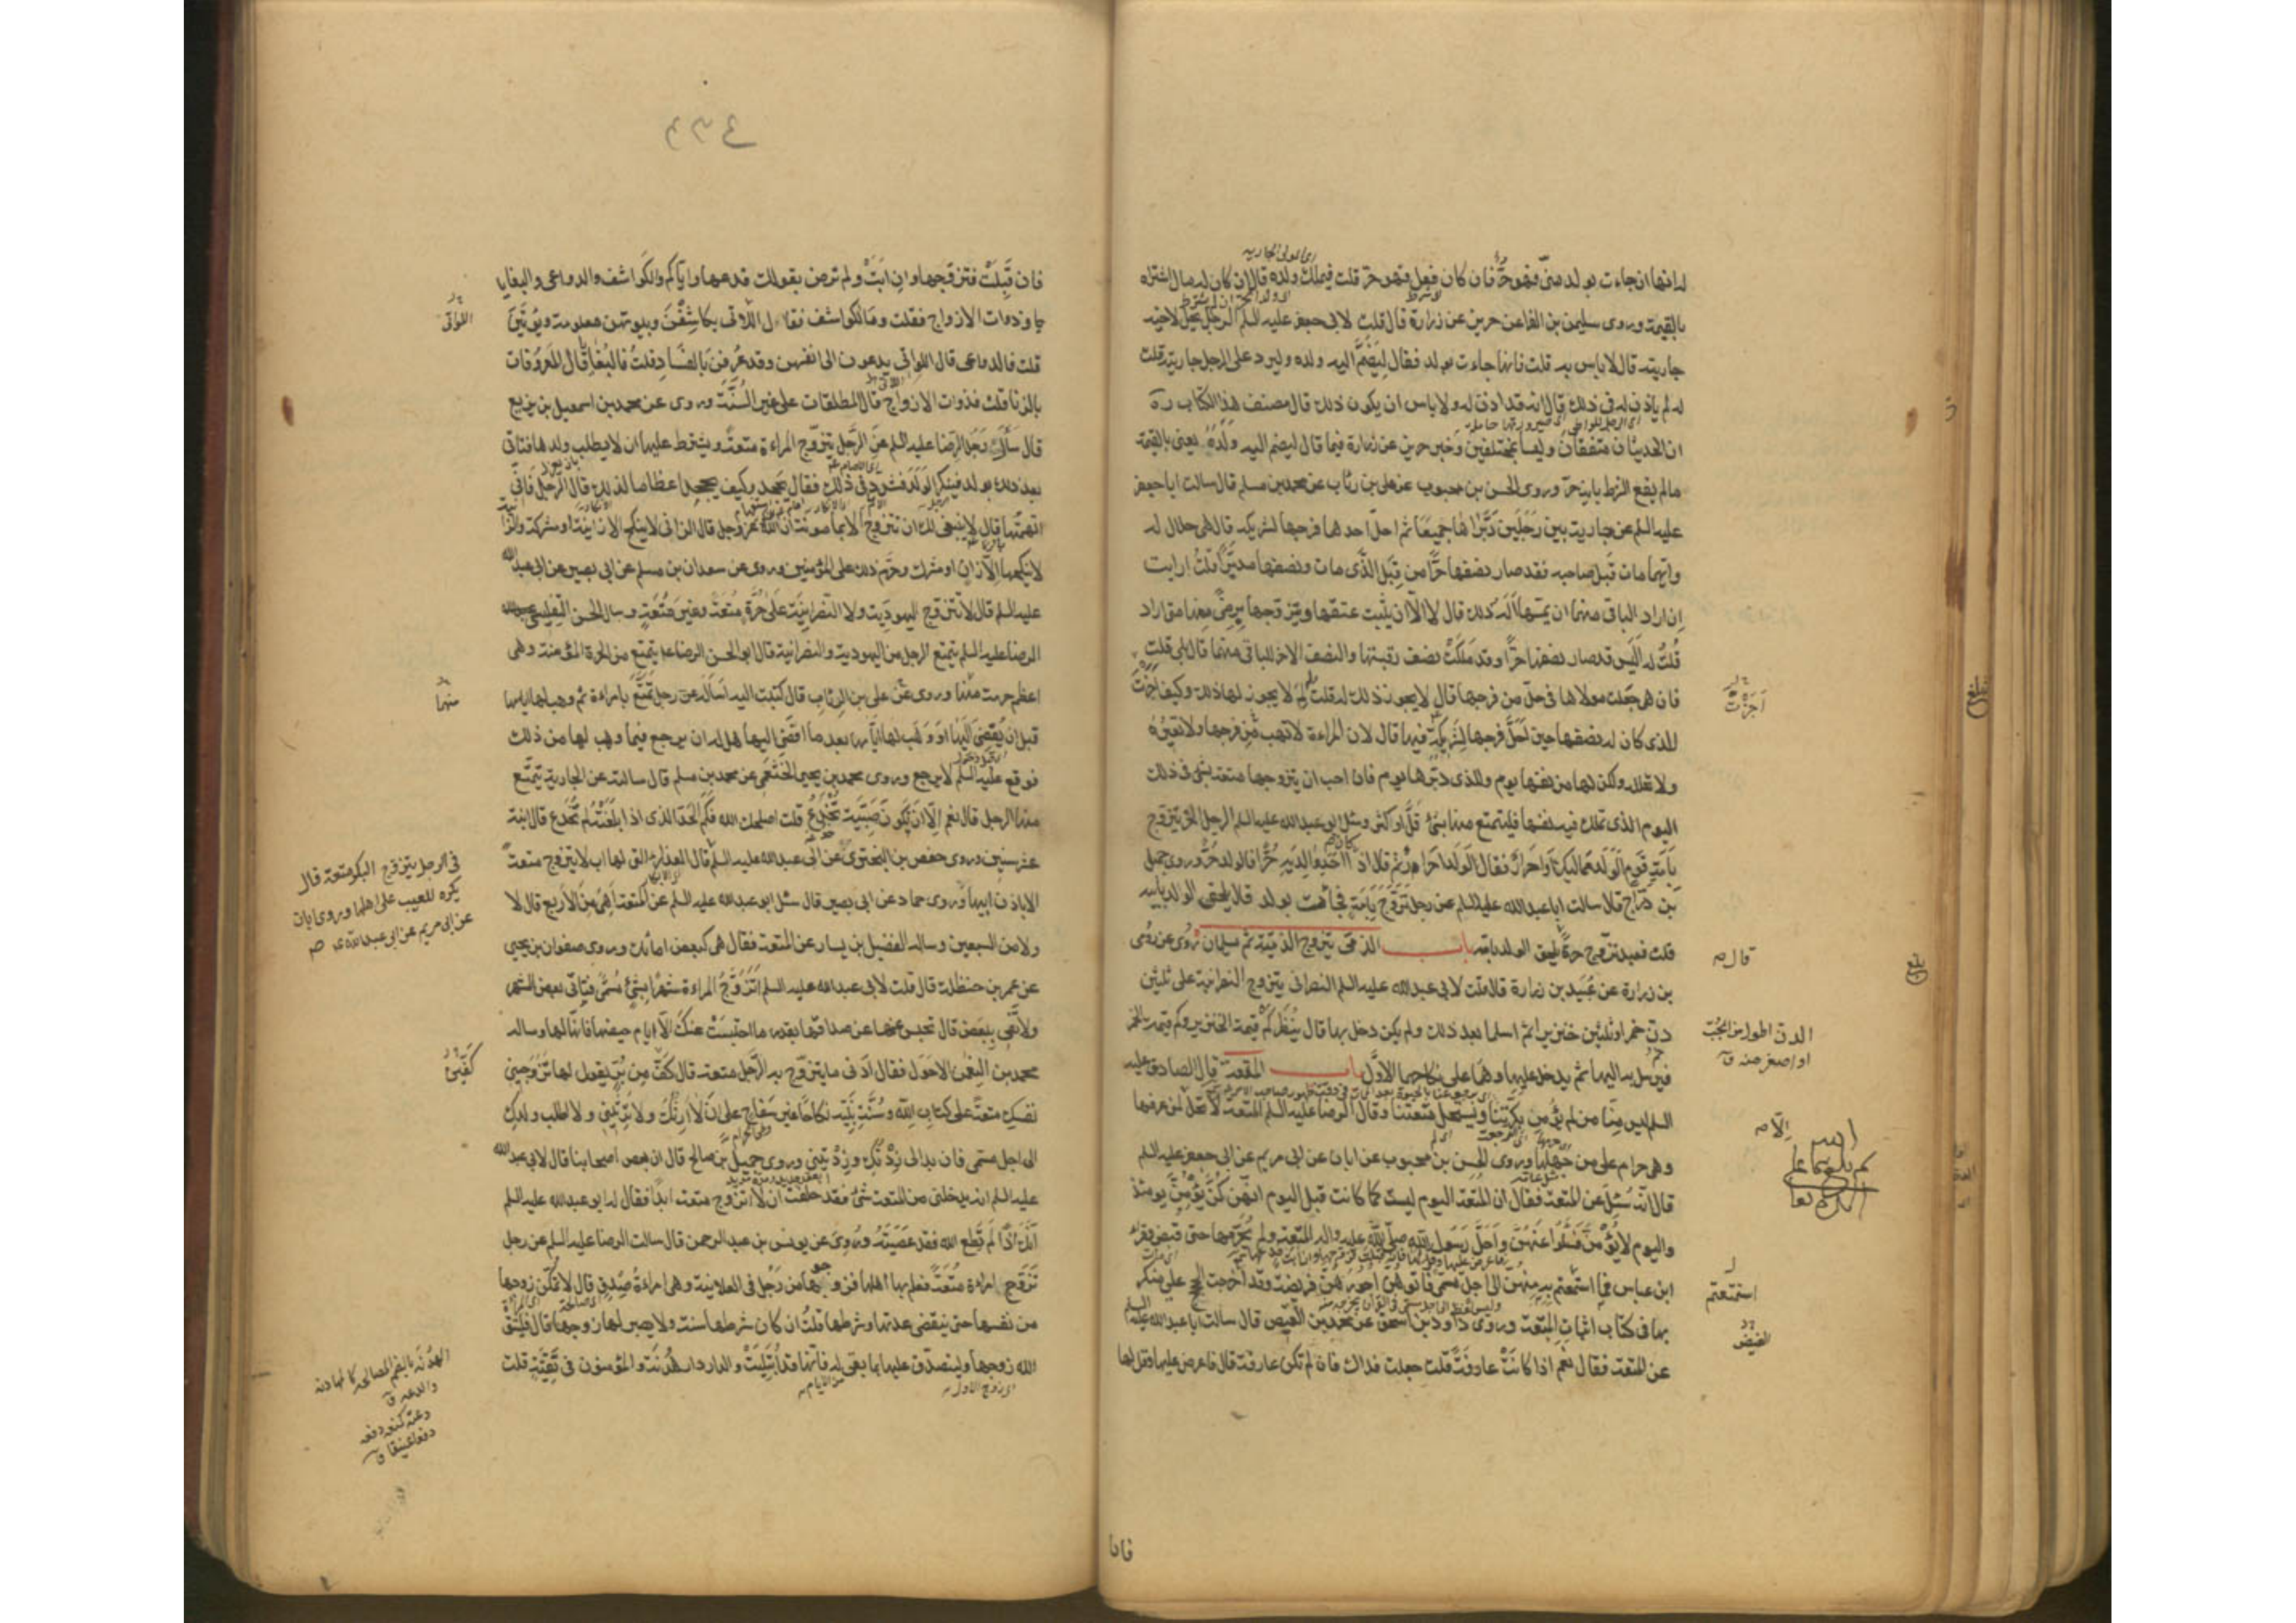 لها انها ان جاءت بولد منى فهو حر فان كان فعل فهو حر قلت فيملك ولده قال ان كان له مال اشتراه
بالقيمة وروى سليمن بن الفراعن حريز عن زرارة قال قلت لابى جعفر عليه السلم الرجل يحل لاخيه
جاريته قال لا باس به قلت فانها جاءت بولد فقال ليضم اليه ولده وليرد على الرجل جاريته قلت
له لم ياذن له فى ذلك قال انه قد اذن له ولا باس ان يكون ذلك قال مصنف هذا الكتاب ره
ان الحديثان متفقان وليسا بمختلفين وخبر حريز عن زرارة فيما قال ليضم اليه ولده يعنى بالقيمة
مالم يقع الشرط بانه حر وروى الحسن بن محبوب عن على بن رئاب عن محمد بن مسلم قال سالت ابا جعفر
عليه السلم عن جارية بين رجلين دبراها جميعا ثم احل احدهما فرجها لشريكه قال هى حلال له
وايهما مات قبل صاحبه فقد صار نصفها حرا من قبل الذى مات ونصفها مدبرا قلت ارايت
ان اراد الباقى منهما ان يمسها اله ذلك قال لا الا ان يثبت عتقها ويتزوجها برضى منها متى اراد
قلت له اليس قد صار نصفها حرا وقد ملكت نصف رقبتها والنصف الاخر للباقى منهما قال بلى قلت
فان هى جعلت مولاها فى حل من فرجها قال لا يجوز ذلك له قلت لم لا يجوز لها ذلك وكيف اجزت
للذى كان له نصفها حين احل فرجها لشريكه فيها قال لان المراءة لا تهب فرجها ولا تعيره
ولا تحلله ولكن لها من نفسها يوم وللذى دبرها يوم فان احب ان يتزوجها متعة بشئ فى ذلك
اليوم الذى تملك فيه نفسها فليتمتع منها بشئ قل او كثر وسئل ابو عبدالله عليه السلم الرجل الحر يتزوج
بامة قوم الولد مماليك او احرار فقال الولد احرار ثم قال اذا كان احد والديه حرا فالولد حر وروى جميل
بن دراج قال سالت ابا عبدالله عليه السلم عن رجل تزوج بامة فجائت بولد قال يلحق الولد بابيه
قلت فعبد تزوج حرة قال يلحق الولد بامه باب الذمى يتزوج الذمية ثم يسلمان روى عن رومى
بن زرارة عن عبيد بن زرارة قال قلت لابى عبدالله عليه السلم النصرانى يتزوج النصرانية على ثلثين
دن خمر او ثلثين خنزيرا ثم اسلما بعد ذلك ولم يكن دخل بها قال ينظر كم قيمة الخنزير وكم قيمة الخمر
فيرسل به اليها ثم يدخل عليها وهما على نكاحهما الاول باب المتعة قال الصادق عليه
السلم ليس منا من لم يؤمن بكرتنا ويستحل متعتنا وقال الرضا عليه السلم المتعة لا تحل الا لمن عرفها
وهى حرام على من جهلها وروى الحسن بن محبوب عن ابان عن ابى مريم عن ابى جعفر عليه السلم
قال انه سئل عن المتعة فقال ان المتعة اليوم ليست كما كانت قبل اليوم انهن كن يؤمن يومئذ
واليوم لا يؤمن فسلوا عنهن واحل رسول الله صلى الله عليه واله المتعة ولم يحرمها حتى قبض وقراء
ابن عباس فما استمتعتم به منهن الى اجل مسمى فاتوهن اجورهن فريضة وقد اخرجت الحج على منكر
بها فى كتاب اثبات المتعة وروى داود بن اسحق عن محمد بن الفيض قال سالت ابا عبدالله عليه السلم
عن المتعة فقال نعم اذا كانت عارفة قلت جعلت فداك فان لم تكن عارفة قال فاعرض عليها وقل لها
اجزت
قال
الدن الطوارىء الحب
او اصغر منه ق
الا
استمتعتم
الفيض
بلغ
فان
٢٣٤
فان قبلت فتزوجها وان ابت ولم ترض بقولك فدعها واياكم والكواشف والدواعى والبغايا
وذوات الازواج فقلت وما الكواشف فقال اللاتى يكاشفن وبيوتهن معلومة ويؤتين
قلت فالدواعى قال اللواتى يدعون الى انفسهن وقد عرفن بالفساد قلت فالبغايا قال المعروفات
بالزنا قلت فذوات الازواج قال المطلقات على غير السنة وروى عن محمد بن اسمعيل بن بزيع
قال سأل رجل الرضا عليه السلم عن الرجل يتزوج المراءة متعة ويشترط عليها ان لا يطلب ولدها فتاتى
بعد ذلك بولد فينكر الولد فشدد فى ذلك فقال يجحد وكيف يجحد اعظاما لذلك قال الرجل فانى
اتهمتها قال لا ينبغى لك ان تتزوج الا بمامونة ان الله عز وجل قال الزانى لا ينكح الا زانية او مشركة والزانية
لا ينكحها الا زان او مشرك وحرم ذلك على المؤمنين وروى عن سعدان بن مسلم عن ابى بصير عن ابى عبدالله
عليه السلم قال لا تتزوج اليهودية ولا النصرانية على حرة متعة وغير متعة وسال الحسن التفليسى
الرضا عليه السلم يتمتع الرجل من اليهودية والنصرانية قال ابو الحسن الرضا ع يتمتع من الحرة المؤمنة وهى
اعظم حرمة منها وروى عن على بن الرئاب قال كتبت اليه اسأله عن رجل تمتع بامراءة ثم وهب لها ايامها
قبل ان يفضى اليها او وهب لها ايامها بعد ما افضى اليها هل له ان يرجع فيما وهب لها من ذلك
فوقع عليه السلم لا يرجع وروى محمد بن يحيى الخثعمى عن محمد بن مسلم قال سالته عن الجارية يتمتع
منها الرجل قال نعم الا ان يكون صبية تخدع قلت اصلحك الله فكم الحد الذى اذا بلغته لم تخدع قال ابنة
عشر سنين وروى حفص بن البخترى عن ابى عبدالله عليه السلم قال العذراء التى لها اب لا تتزوج متعة
الا باذن ابيها وروى حماد عن ابى بصير قال سئل ابو عبدالله عليه السلم عن المتعة اهى من الاربع قال لا
ولا من السبعين وساله الفضيل بن يسار عن المتعة فقال هى كبعض امائك وروى صفوان بن يحيى
عن عمر بن حنظلة قال قلت لابى عبدالله عليه السلم اتزوج المراءة شهرا بشئ مسمى فتاتى بعض الشهر
ولا تفى ببعض قال تحبس عنها من صداقها بقدر ما احتبست عنك الا ايام حيضها فانها لها وساله
محمد بن النعمن الاحول فقال ادنى ما يتزوج به الرجل متعة قال كف من بر يقول لها زوجينى
نفسك متعة على كتاب الله وسنة نبيه نكاحا غير سفاح على ان لا ارثك ولا ترثينى ولا اطلب ولدك
الى اجل مسمى فان بدا لى زدتك وزدتينى وروى جميل بن صالح قال ان بعض اصحابنا قال لابى عبدالله
عليه السلم انه يدخلنى من المتعة شئ فقد حلفت ان لا اتزوج متعة ابدا فقال له ابو عبدالله عليه السلم
انك اذا لم تطع الله فقد عصيته وروى عن يونس بن عبدالرحمن قال سالت الرضا عليه السلم عن رجل
تزوج امراءة متعة فعلم بها اهلها فزوجوها من رجل فى العلانية وهى امراءة صدق قال لا تمكن زوجها
من نفسها حتى ينقضى عدتها وشرطها قلت ان كان شرطها سنة ولا يصبر لها زوجها قال فليتق
الله زوجها وليتصدق عليها بما بقى له فانها قد ابتليت والدار دار هدنة والمؤمنون فى تقية قلت
اللواتى
منها
فى الرجل يتزوج البكر متعة قال
يكره للعيب على اهلها وروى ابان
عن ابى مريم عن ابى عبدالله ع
الهدنة بالضم المصالحة كالمهادنة